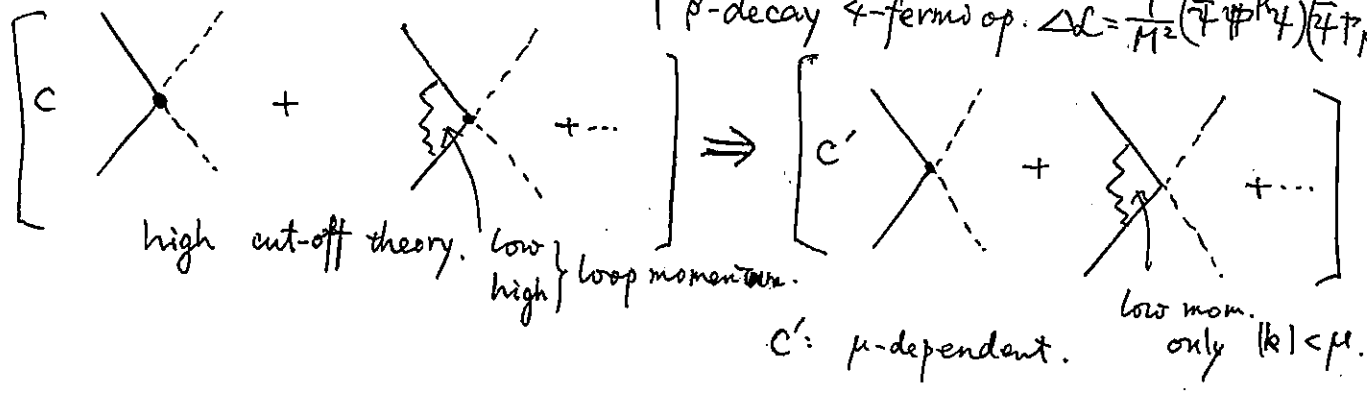 β-decay 4-fermi op. ΔL = 1/M² (
[ C + + ... ] ⇒ [ C′ + + ... ]
high cut-off theory. low
high } loop momentum.
low mom.
only |k| < μ.
C′: μ-dependent.